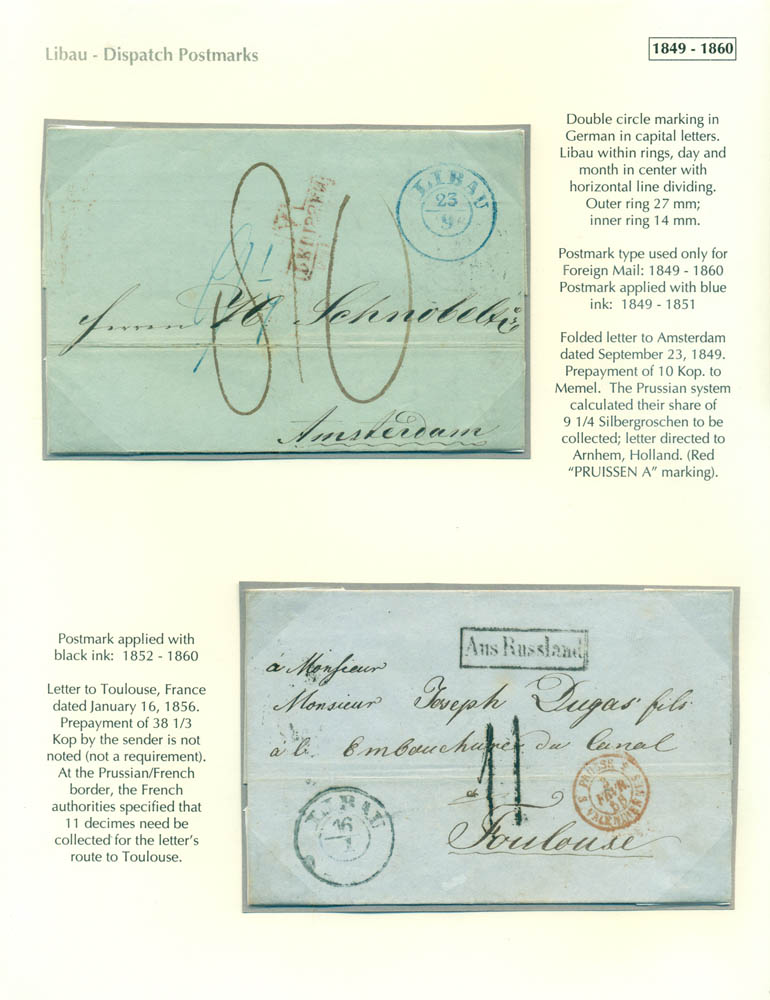 Libau - Dispatch Postmarks
1849 - 1860
Double circle marking in
German in capital letters.
Libau within rings, day and
month in center with
horizontal line dividing.
Outer ring 27 mm;
inner ring 14 mm.
Postmark type used only for
Foreign Mail: 1849 - 1860
Postmark applied with blue
ink: 1849 - 1851
Folded letter to Amsterdam
dated September 23, 1849.
Prepayment of 10 Kop. to
Memel. The Prussian system
calculated their share of
9 1/4 Silbergroschen to be
collected; letter directed to
Arnhem, Holland. (Red
“PRUISSEN A” marking).
LIBAU
23
9
80
Herren
Amsterdam
Postmark applied with
black ink: 1852 - 1860
Letter to Toulouse, France
dated January 16, 1856.
Prepayment of 38 1/3
Kop by the sender is not
noted (not a requirement).
At the Prussian/French
border, the French
authorities specified that
11 decimes need be
collected for the letter’s
route to Toulouse.
Aus Russland
à Monsieur
Monsieur Joseph Dugas fils
à l. Embouchure du Canal
11
à
Toulouse
LIBAU
16
1
PRUSSE
FEVR.
VALENCIENNES